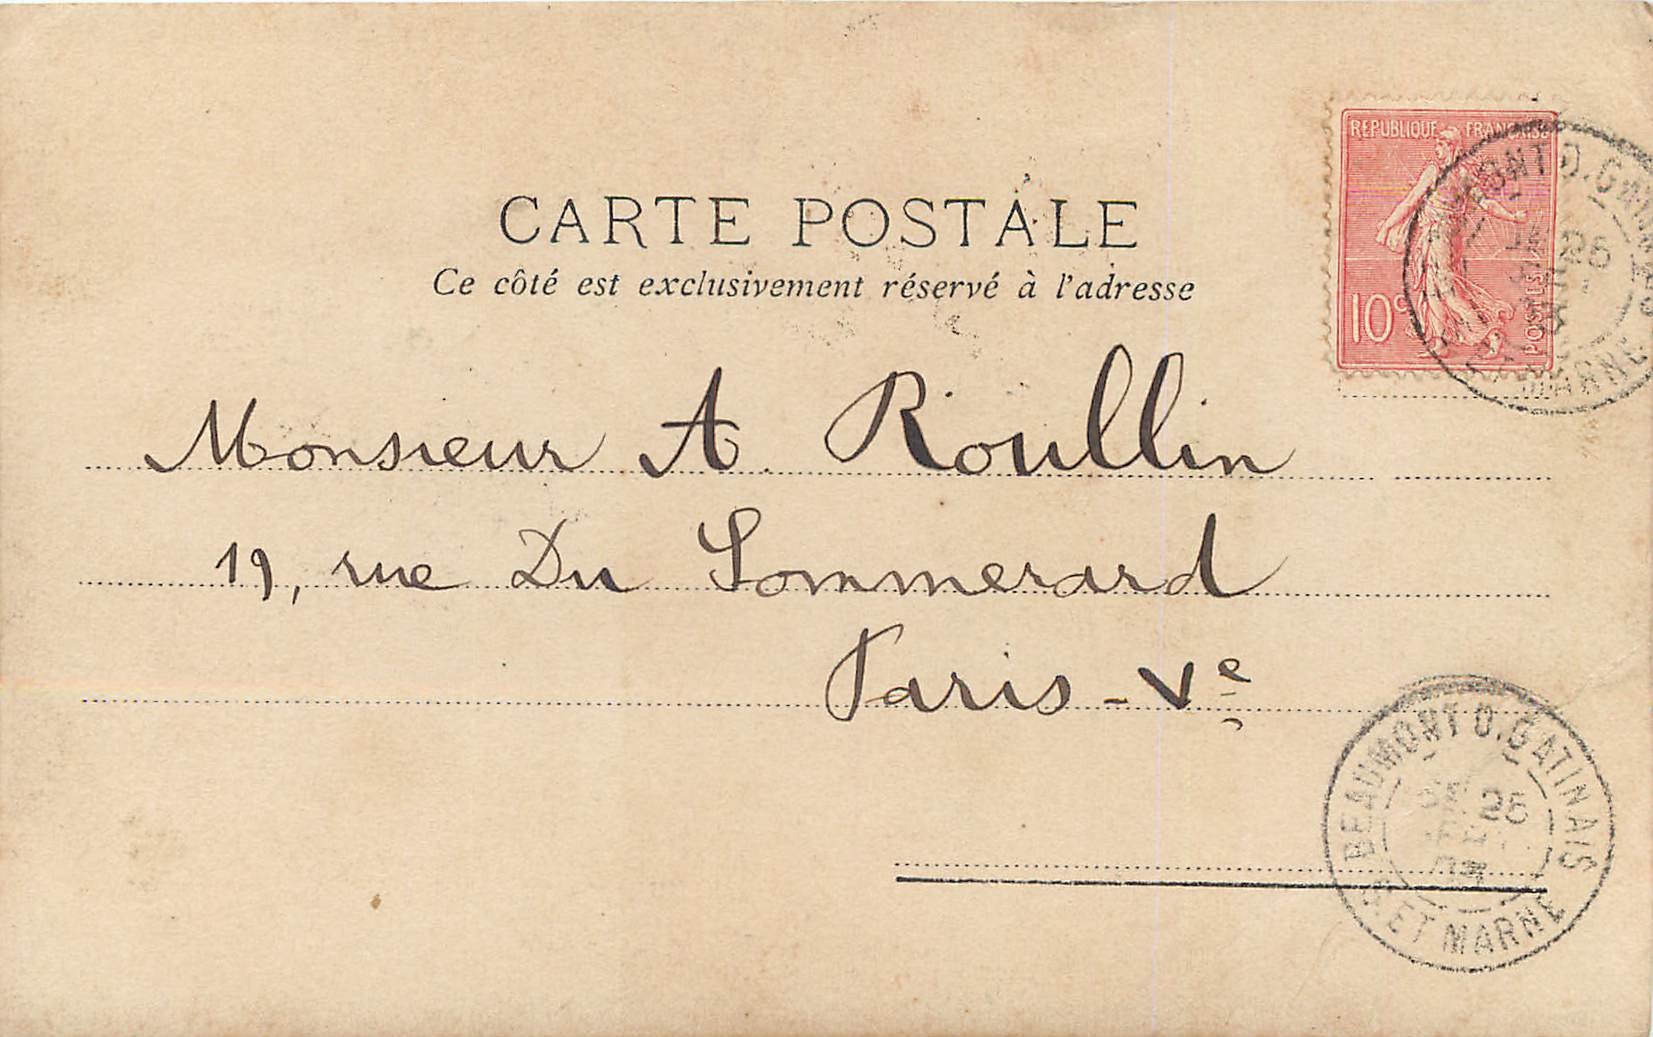 CARTE POSTALE
Ce côté est exclusivement réservé à l'adresse
REPUBLIQUE FRANÇAISE
10c
POSTES
MARNE
Monsieur A. Roullin
19, rue Du Sommerard
Paris - Ve
BEAUMONT D. GATINAIS
25
S. ET MARNE